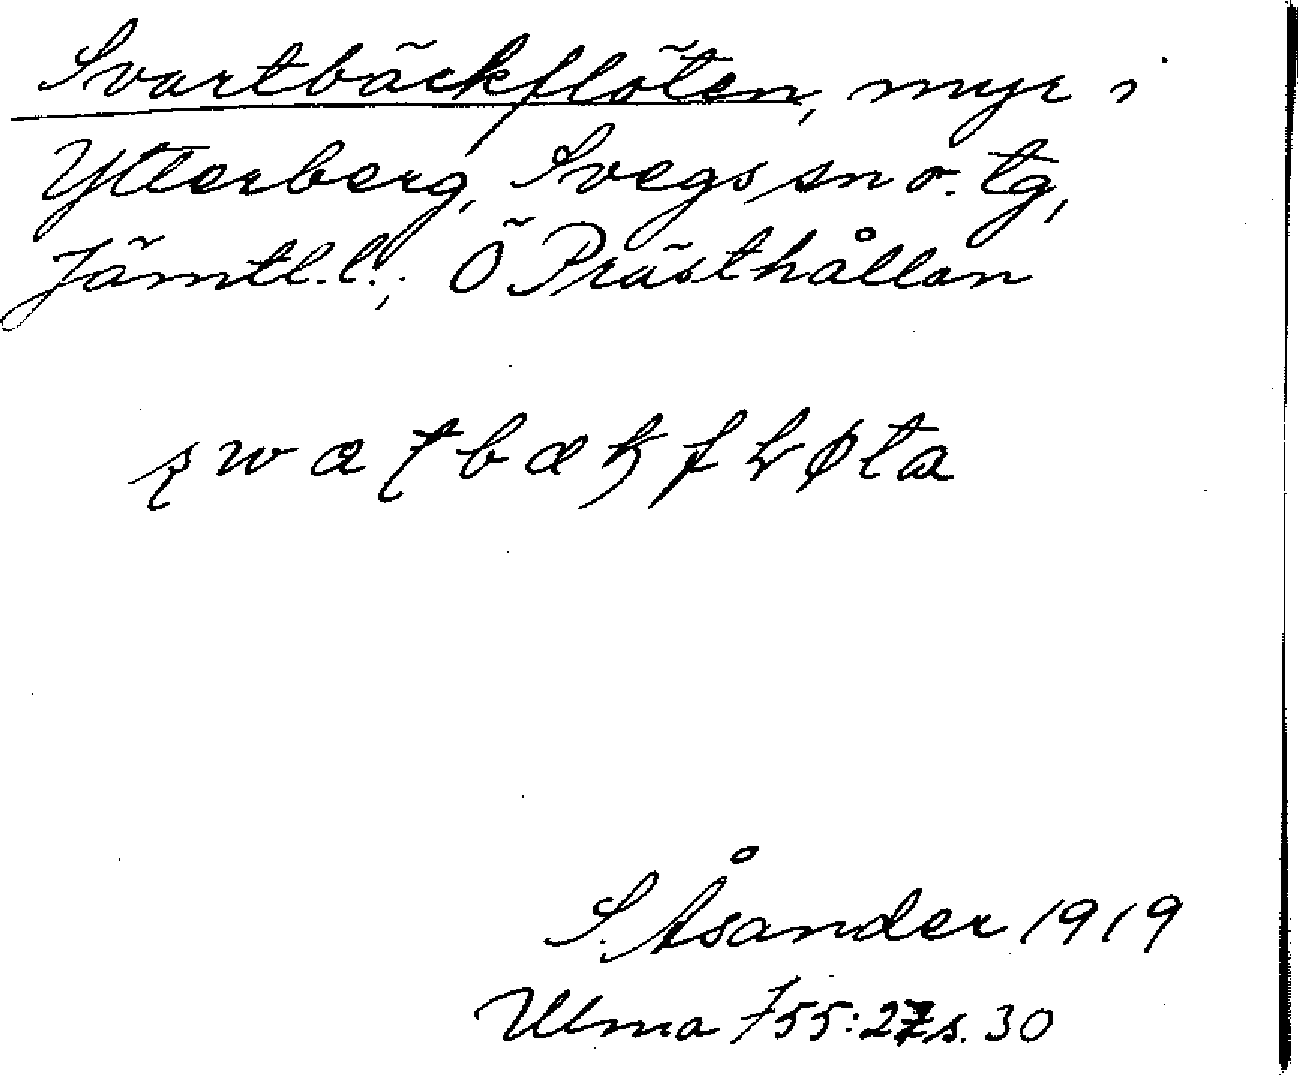 Svartbäckflöten, myr i
Ytterberg, Svegs sn o. tg,
Jämtl. l.; Ö Prästhållan
S. Åsander 1919
Ulma 755:27 s. 30